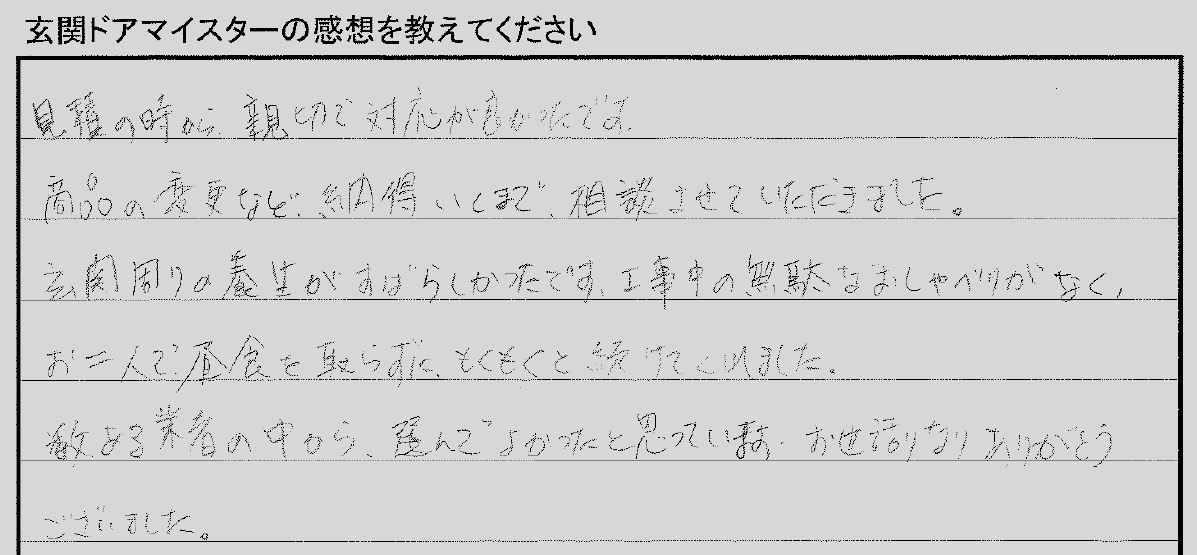 玄関ドアマイスターの感想を教えてください
見積の時から、親切で対応が良かったです。
商品の変更など、納得いくまで、相談させていただきました。
玄関周りの養生がすばらしかったです。工事中の無駄なおしゃべりがなく,
お二人で、昼食を取らずに、もくもくと続けてくれました。
数ある業者の中から、選んでよかったと思っています。お世話になりありがとう
ございました。